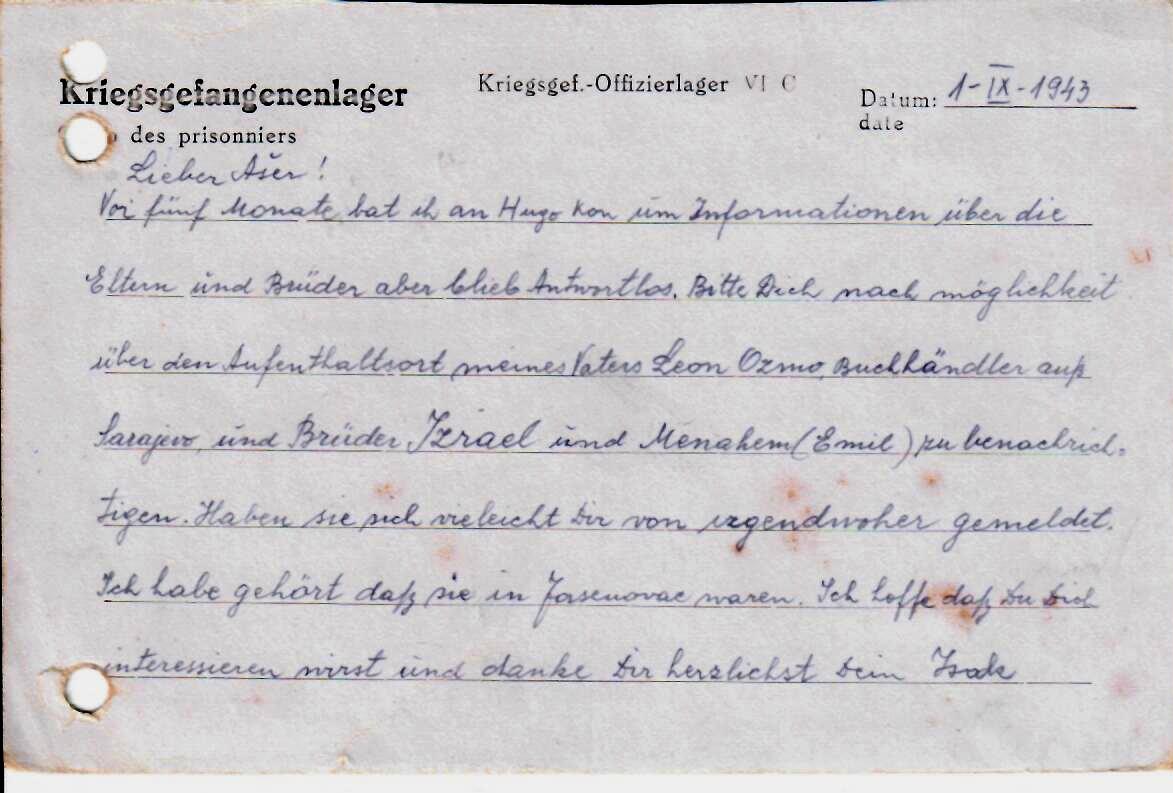 Kriegsgefangenenlager
Kriegsgef.-Offizierlager VI C
Datum: 1-IX-1943
date
des prisonniers
Lieber Ašer!
Vor fünf Monate bat ich an Hugo Kon um Informationen über die
Eltern und Brüder aber blieb Antwortlos. Bitte Dich nach möglichkeit
über den Aufenthaltsort meines Vaters Leon Ozmo, Buchhändler auß
Sarajevo, und Brüder Izrael und Menahem (Emil) zu benachrich-
tigen. Haben sie sich vieleicht Dir von irgendwoher gemeldet.
Ich habe gehört daß sie in Jasenovac waren. Ich hoffe daß Du Dich
interessieren wirst und danke Dir herzlichst Dein Isak